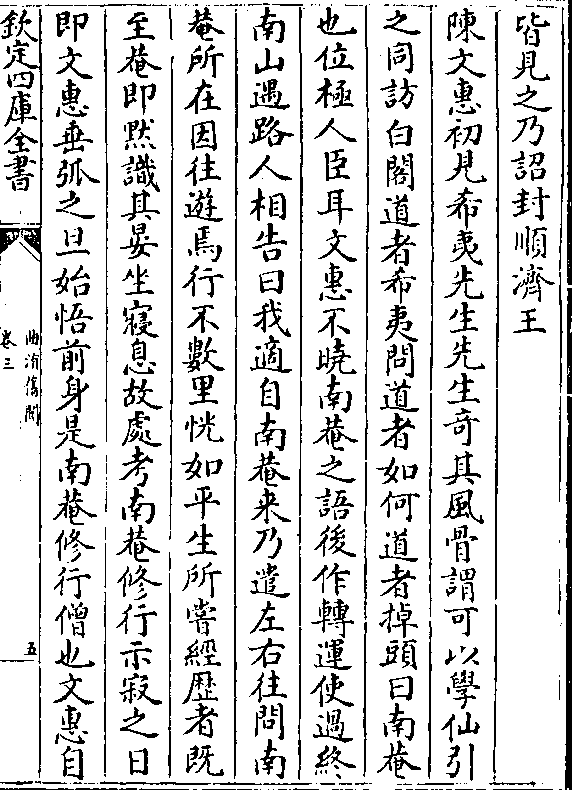 皆見之乃詔封順濟王
陳文惠初見希夷先生先生奇其風骨謂可以學仙引
之同訪白閣道者希夷問道者如何道者掉頭曰南菴
也位極人臣耳文惠不曉南菴之語後作轉運使過終
南山遇路人相告曰我適自南菴来乃遣左右往問南
菴所在因往遊焉行不數里恍如平生所嘗經歴者既
至菴即黙識其晏坐寢息故處考南菴修行示寂之日
即文惠垂弧之旦始悟前身是南菴修行僧也文惠自
欽定四庫全書
曲洧舊聞
卷三
五